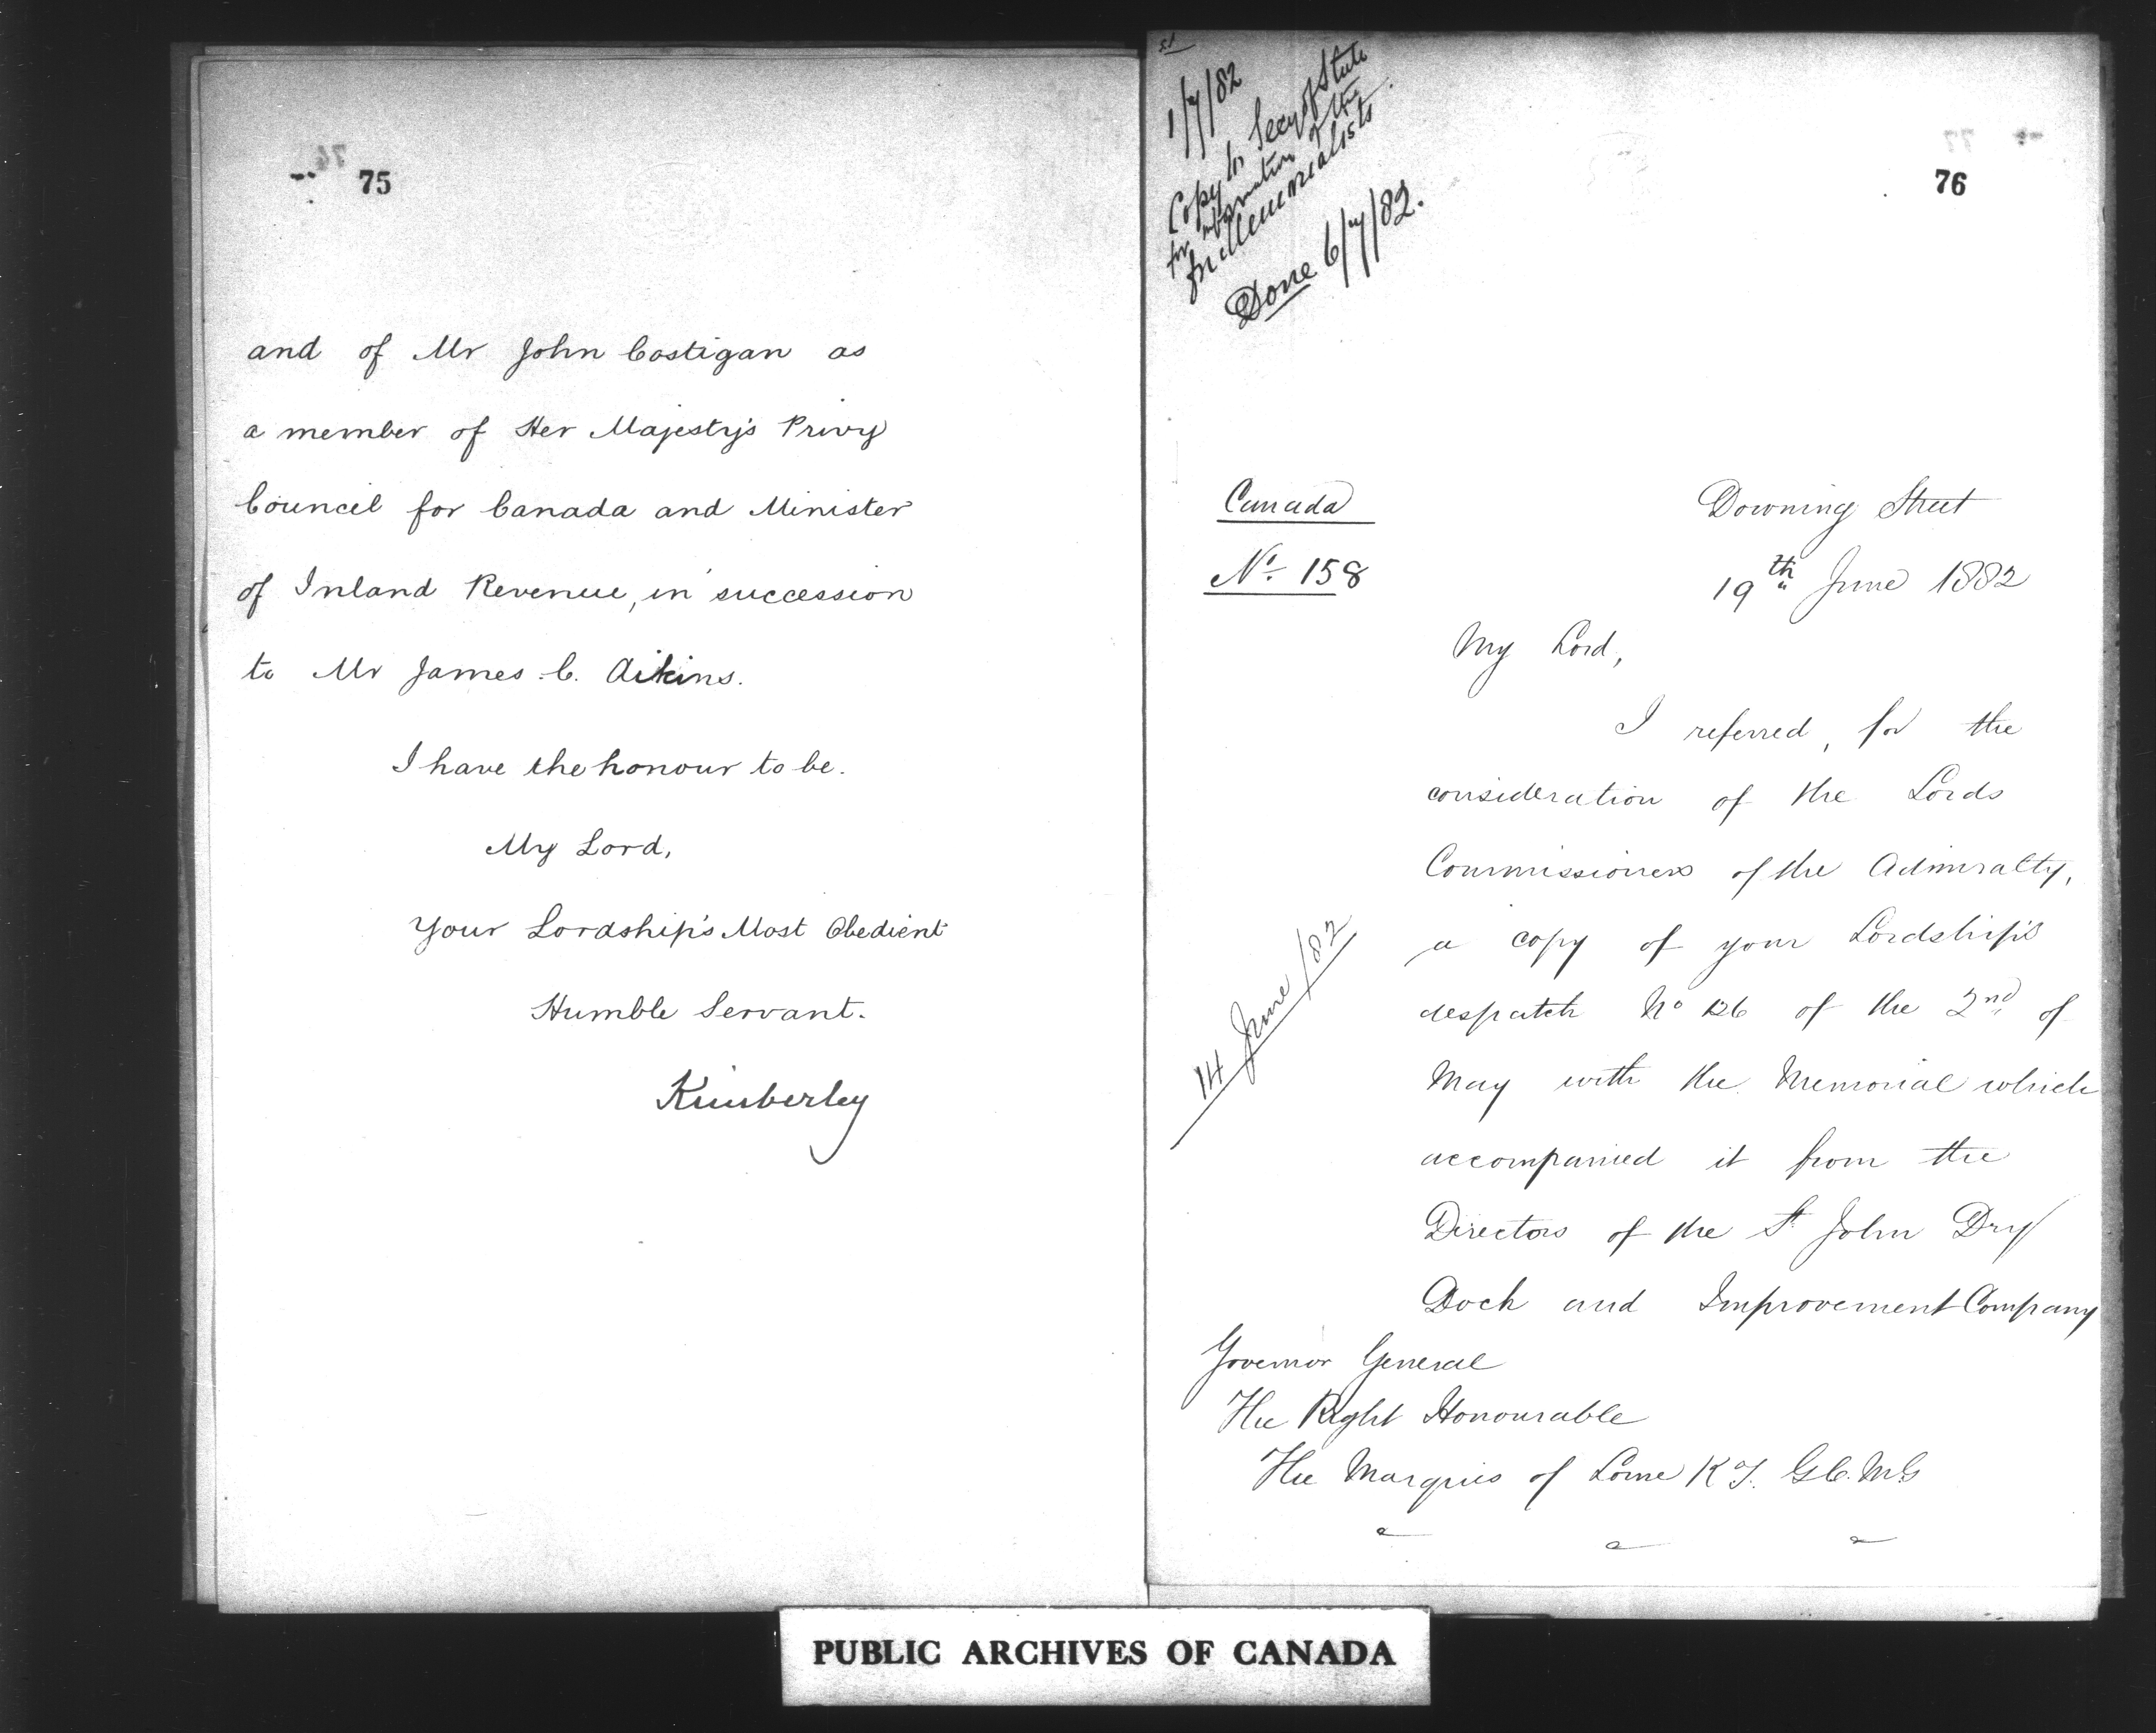 75
and of Mr John Costigan as
a member of Her Majesty's Privy
Council for Canada and Minister
of Inland Revenue, in succession
to Mr James C. Aikins.
I have the honour to be.
My Lord,
Your Lordship's Most Obedient
Humble Servant.
Kimberley
76
1/7/82
Copy to Secy of State
for information of the
Memorialists
Done 6/7/82.
Canada
No. 158
Downing Street
19th June 1882
My Lord,
I referred, for the
consideration of the Lords
Commissioners of the Admiralty,
a copy of your Lordship's
despatch No 126 of the 2nd of
May with the Memorial which
accompanied it from the
Directors of the St John Dry
Dock and Improvement Company
14 June /82
Governor General
The Right Honourable
The Marquis of Lorne K.T. G.C.M.G
PUBLIC ARCHIVES OF CANADA